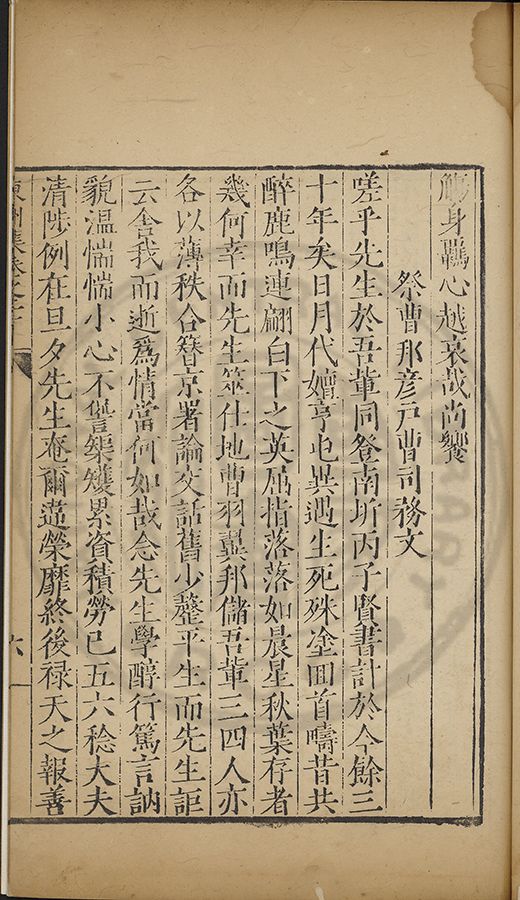 觴身羈心越哀哉尚饗
祭曹邦彥戶曹司務文
嗟乎先生於吾輩同登南圻丙子賢書計於今餘三
十年矣日月代嬗亨屯異遇生死殊塗囬首疇昔共
醉鹿鳴連翩白下之英屈指落落如晨星秋葉存者
幾何幸而先生筮仕地曹羽翼邦儲吾輩三四人亦
各以薄秩合簪京署論交話舊少罄平生而先生詎
云舍我而逝爲情當何如哉念先生學醇行篤言訥
貌温惴惴小心不諐榘矱累資積勞已五六稔大夫
清陟例在旦夕先生奄爾遺榮靡終後禄天之報善
東洲集卷之十
六